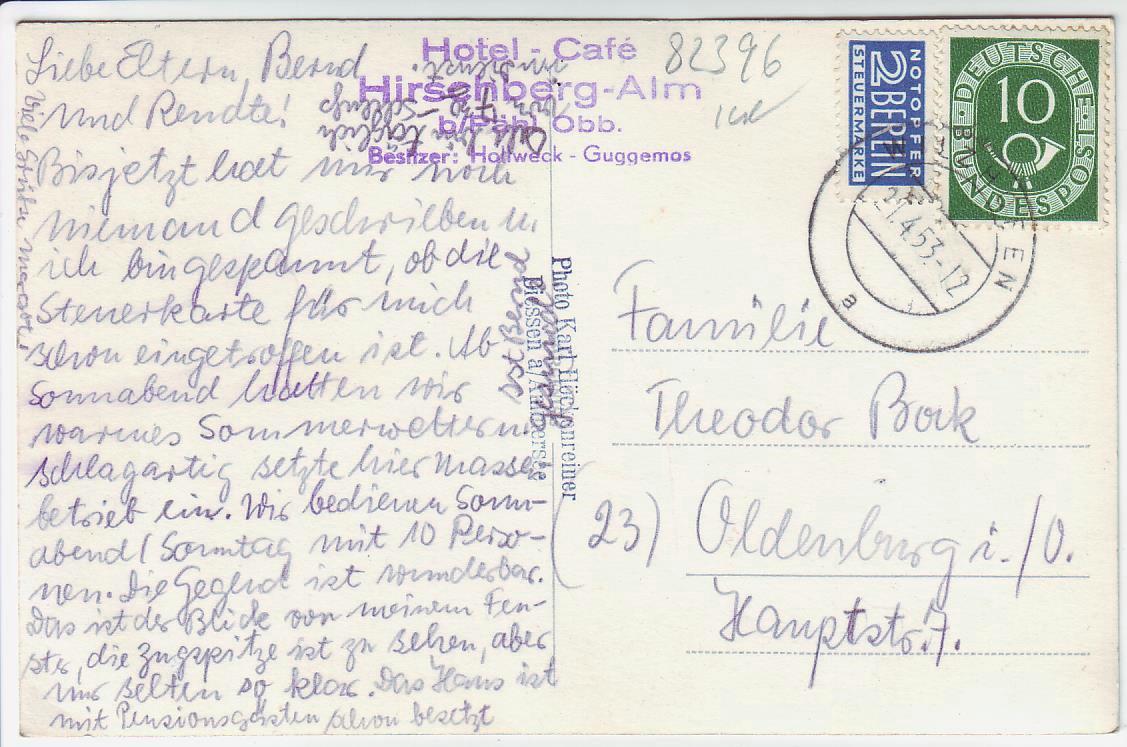 Liebe Eltern Bernd
und Rendte!
Bisjetzt hat mir noch
niemand geschrieben u.
ich bin gespannt, ob die
Steuerkarte für mich
schon eingetroffen ist. Ab
Sonnabend hatten wir
warmes Sommerwetter u.
schlagartig setzte hier Massen
betrieb ein. Wir bedienen Sonn-
abend/Sonntag mit 10 Perso-
nen. Die Gegend ist wunderbar.
Das ist der Blick von meinem Fen-
ster, die Zugspitze ist zu sehen, aber
nur selten so klar. Das Haus ist
mit Pensionsgästen schon besetzt
Viele Grüße
ist Bernd
täglich
Hotel - Café
Hirschberg-Alm
b/Pähl Obb.
Besitzer: Hollweck - Guggemos
82396
Photo Karl Flöckenreiner
Diessen a/Ammersee
NOTOPFER
2 BERLIN
STEUERMARKE
DEUTSCHE
BUNDESPOST
10
21.4.53.-12
a
Familie
Theodor Bock
(23) Oldenburg i./O.
Hauptstr. 7.